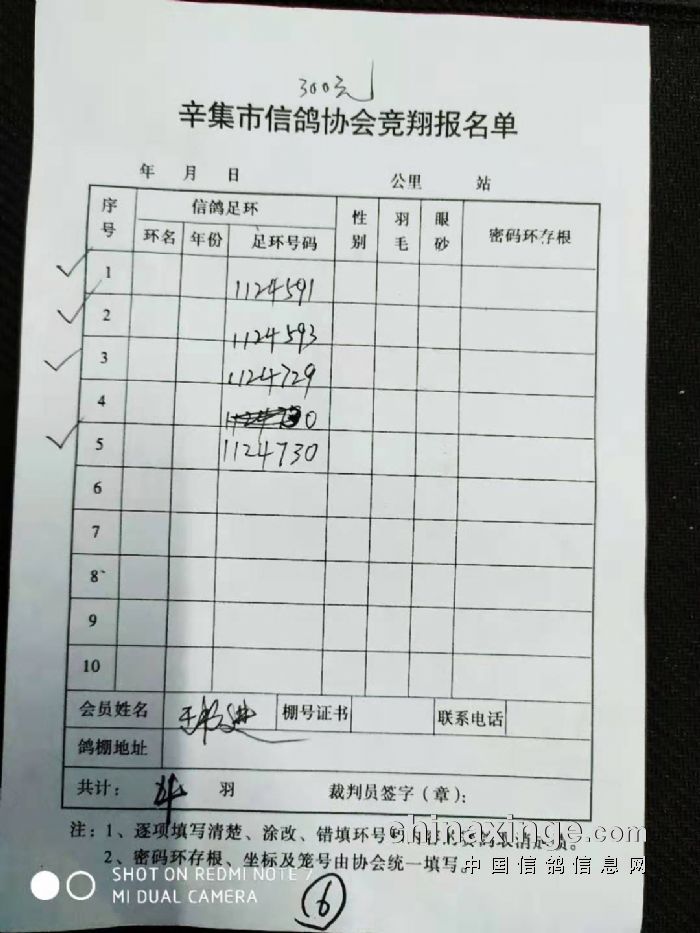 300元
辛集市信鸽协会竞翔报名单
年 月 日 公里 站
序号 信鸽足环 性别 羽毛 眼砂 密码环存根
环名 年份 足环号码
1 1124591
2 1124593
3 1124729
4
5 1124730
6
7
8
9
10
会员姓名 棚号证书 联系电话
鸽棚地址
共计： 羽 裁判员签字（章）：
注：1、逐项填写清楚、涂改、错填环号
2、密码环存根、坐标及笼号由协会统一填写。
chinaxinge.com
中国信鸽信息网
SHOT ON REDMI NOTE 7
MI DUAL CAMERA
6